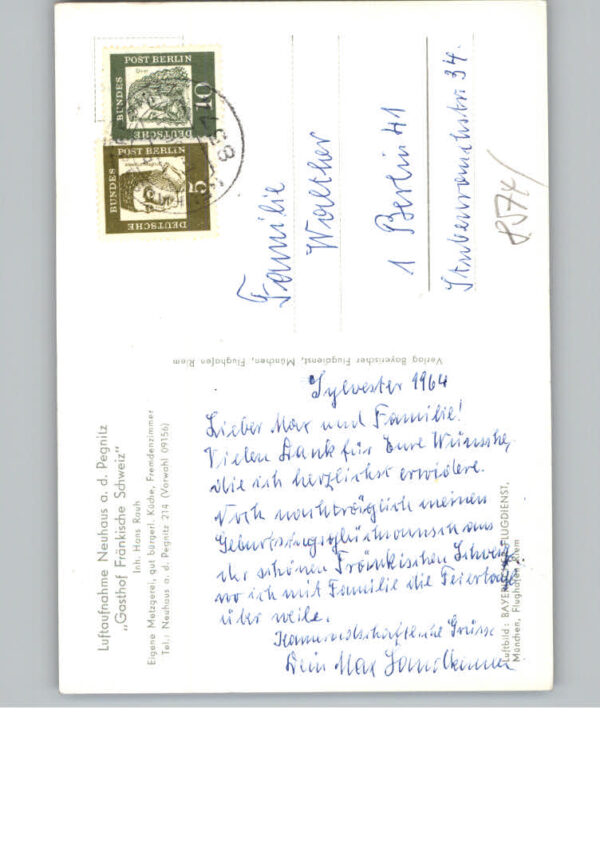 Luftaufnahme Neuhaus a. d. Pegnitz
„Gasthof Fränkische Schweiz"
Inh. Hans Rauh
Eigene Metzgerei, gut bürgerl. Küche, Fremdenzimmer
Tel.: Neuhaus a. d. Pegnitz 214 (Vorwahl 09156)
Sylvester 1964
Lieber Max und Familie!
Vielen Dank für Eure Wünsche,
die ich herzlichst erwidere.
Noch nachträglich meinen
Geburtstagsglückwunsch aus
der schönen Fränkischen Schweiz
wo ich mit Familie die Feiertage
über weile.
Kameradschaftliche Grüsse
Dein Max
Luftbild: BAYER. FLUGDIENST,
München, Flughafen Riem
Verlag Bayerischer Flugdienst, München, Flughafen Riem
DEUTSCHE BUNDES POST BERLIN
10
DEUTSCHE BUNDES POST BERLIN
5
Familie
Walther
1 Berlin 41
Stubenrauchstr. 34.
8574/